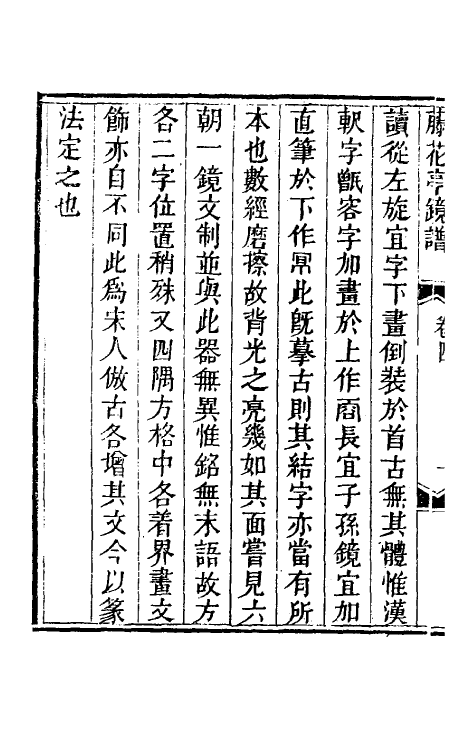 藤花亭鏡譜 卷四 一
讀從左旋宜字下畫倒裝於首古無其體惟漢
軹字甑容字加畫於上作啇長宜子孫鏡宜加
直筆於下作㝢此旣摹古則其結字亦當有所
本也數經磨擦故背光之亮幾如其面嘗見六
朝一鏡文制並與此器無異惟銘無末語故方
各二字位置稍殊又四隅方格中各着界畫文
飾亦自不同此爲宋人倣古各增其文今以篆
法定之也